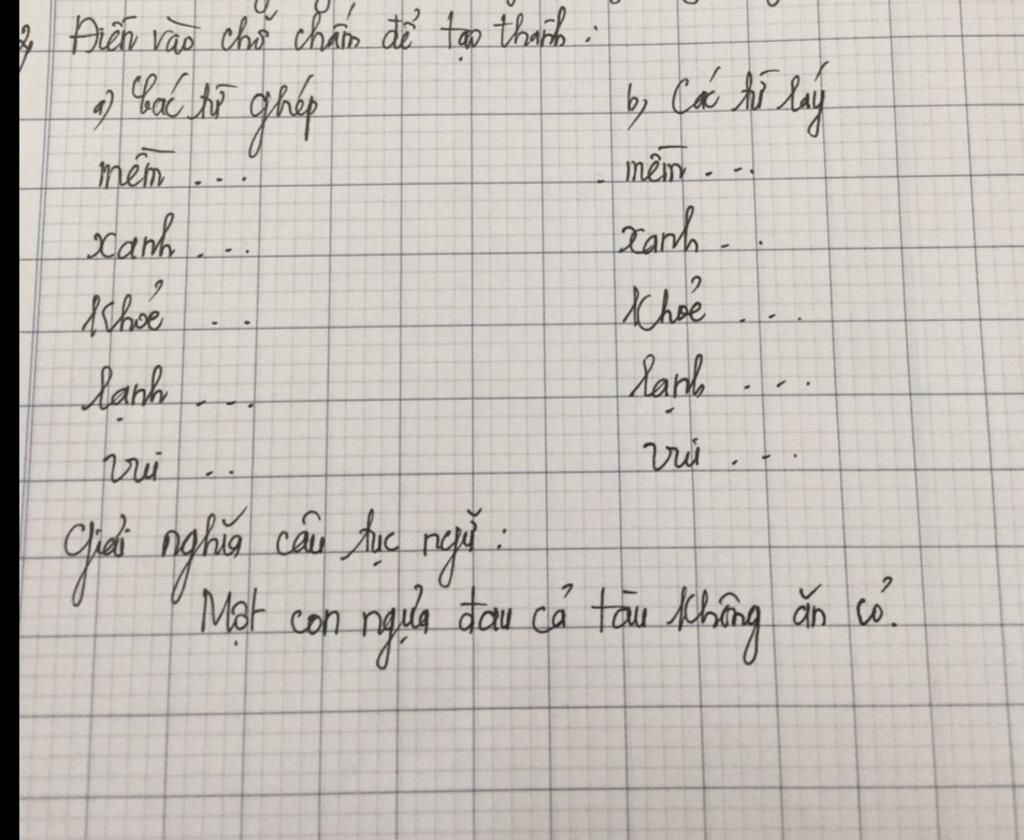 2, Điền vào chỗ chấm để tạo thành:
a) Các từ ghép b, Các từ láy
mềm ... mềm ...
xanh ... xanh ...
Khoẻ ... Khoẻ ...
lạnh ... lạnh ...
vui ... vui ...
Giải nghĩa câu tục ngữ:
Một con ngựa đau cả tàu không ăn cỏ.